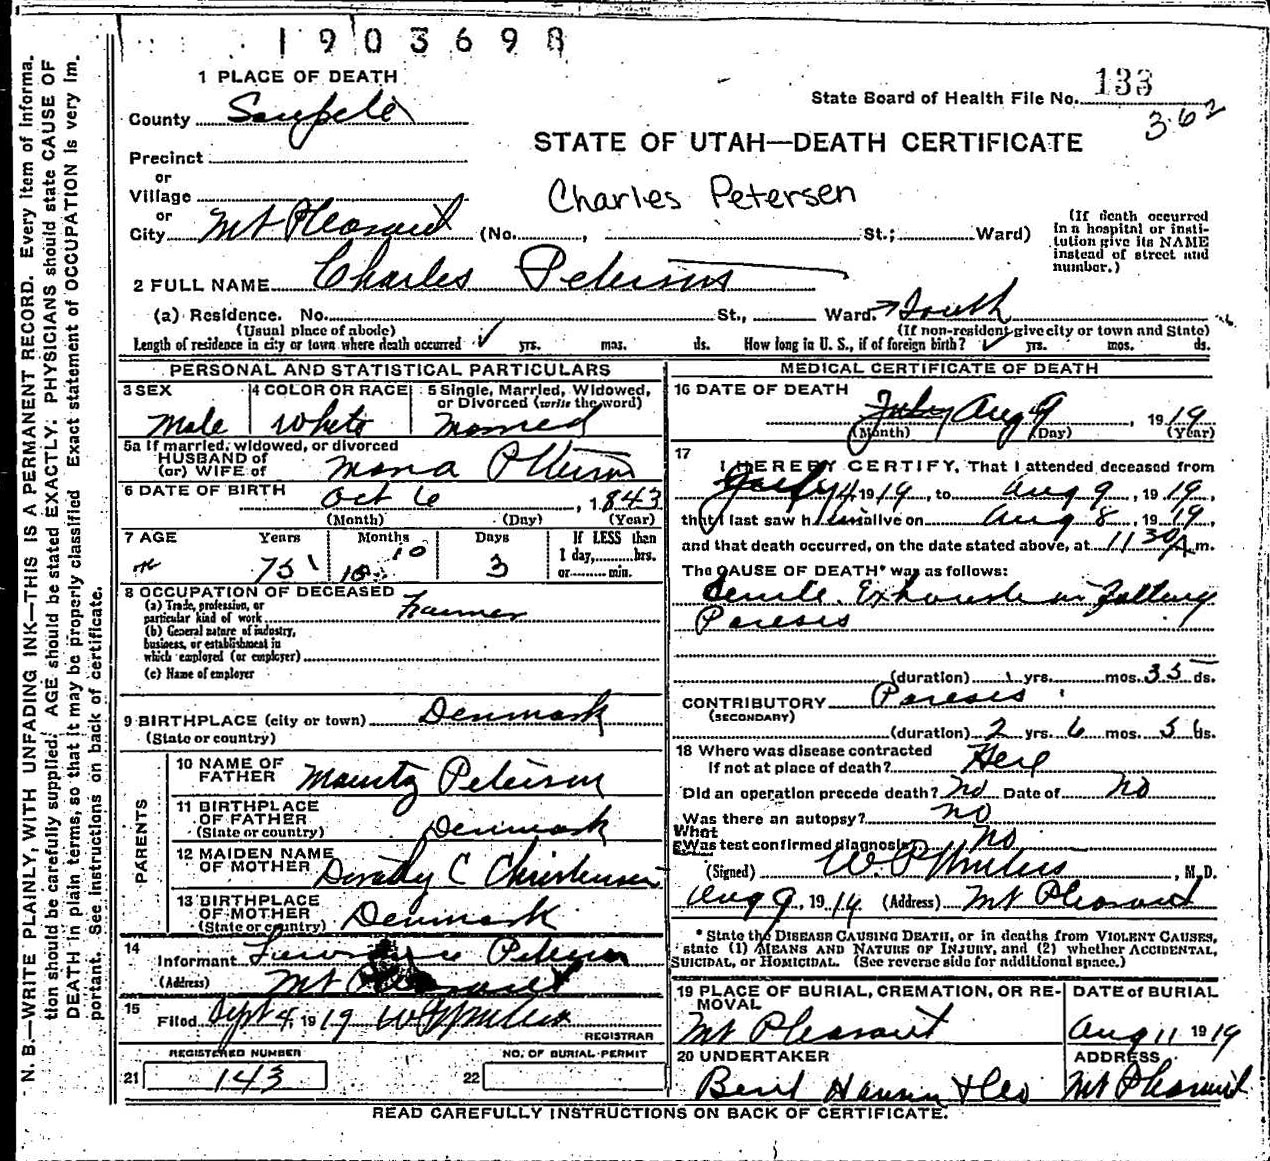 1903698
1 PLACE OF DEATH
State Board of Health File No. 133
362
County Sanpete
STATE OF UTAH—DEATH CERTIFICATE
Precinct
or
Village
Charles Petersen
or
City Mt Pleasant (No. , St.; Ward)
(If death occurred in a hospital or institution give its NAME instead of street and number.)
2 FULL NAME Charles Peterson
(a) Residence. No. St., Ward. South
(Usual place of abode) (If non-resident give city or town and State)
Length of residence in city or town where death occurred yrs. mos. ds. How long in U. S., if of foreign birth? yrs. mos. ds.
PERSONAL AND STATISTICAL PARTICULARS
3 SEX
Male
4 COLOR OR RACE
White
5 Single, Married, Widowed, or Divorced (write the word)
Married
5a If married, widowed, or divorced
HUSBAND of
(or) WIFE of Peterson
6 DATE OF BIRTH
Oct 6, 1843
(Month) (Day) (Year)
7 AGE Years Months Days If LESS than
75 10 3 1 day, hrs.
or min.
8 OCCUPATION OF DECEASED
(a) Trade, profession, or
particular kind of work Farmer
(b) General nature of industry,
business, or establishment in
which employed (or employer)
(c) Name of employer
9 BIRTHPLACE (city or town) Denmark
(State or country)
PARENTS
10 NAME OF
FATHER Mauritz Peterson
11 BIRTHPLACE
OF FATHER
(State or country) Denmark
12 MAIDEN NAME
OF MOTHER Dorathy C Christensen
13 BIRTHPLACE
OF MOTHER
(State or country) Denmark
14
Informant Lawrence Peterson
(Address) Mt Pleasant
15
Filed Sept 4, 1919
REGISTRAR
REGISTERED NUMBER
21 143
NO. OF BURIAL PERMIT
22
MEDICAL CERTIFICATE OF DEATH
16 DATE OF DEATH
July Aug 9, 1919
(Month) (Day) (Year)
17
I HEREBY CERTIFY, That I attended deceased from
July 4 1919, to Aug 9, 1919,
that I last saw him alive on Aug 8, 1919,
and that death occurred, on the date stated above, at 11 30 A m.
The CAUSE OF DEATH* was as follows:
Senile Exhaustion following
Paresis
(duration) yrs. mos. 35 ds.
CONTRIBUTORY Paresis
(SECONDARY)
(duration) 2 yrs. 6 mos. 5 ds.
18 Where was disease contracted
If not at place of death? Here
Did an operation precede death? No Date of no
Was there an autopsy? no
What
Was test confirmed diagnosis no
(Signed) , M.D.
Aug 9, 1919 (Address) Mt Pleasant
* State the DISEASE CAUSING DEATH, or in deaths from VIOLENT CAUSES,
state (1) MEANS AND NATURE OF INJURY, and (2) whether ACCIDENTAL,
SUICIDAL, or HOMICIDAL. (See reverse side for additional space.)
19 PLACE OF BURIAL, CREMATION, OR REMOVAL
Mt Pleasant
DATE of BURIAL
Aug 11 1919
20 UNDERTAKER
Bent Hansen & Co
ADDRESS
Mt Pleasant
READ CAREFULLY INSTRUCTIONS ON BACK OF CERTIFICATE.
N. B.—WRITE PLAINLY, WITH UNFADING INK—THIS IS A PERMANENT RECORD. Every item of informa-
tion should be carefully supplied. AGE should be stated EXACTLY. PHYSICIANS should state CAUSE OF
DEATH in plain terms, so that it may be properly classified. Exact statement of OCCUPATION is very im-
portant. See instructions on back of certificate.